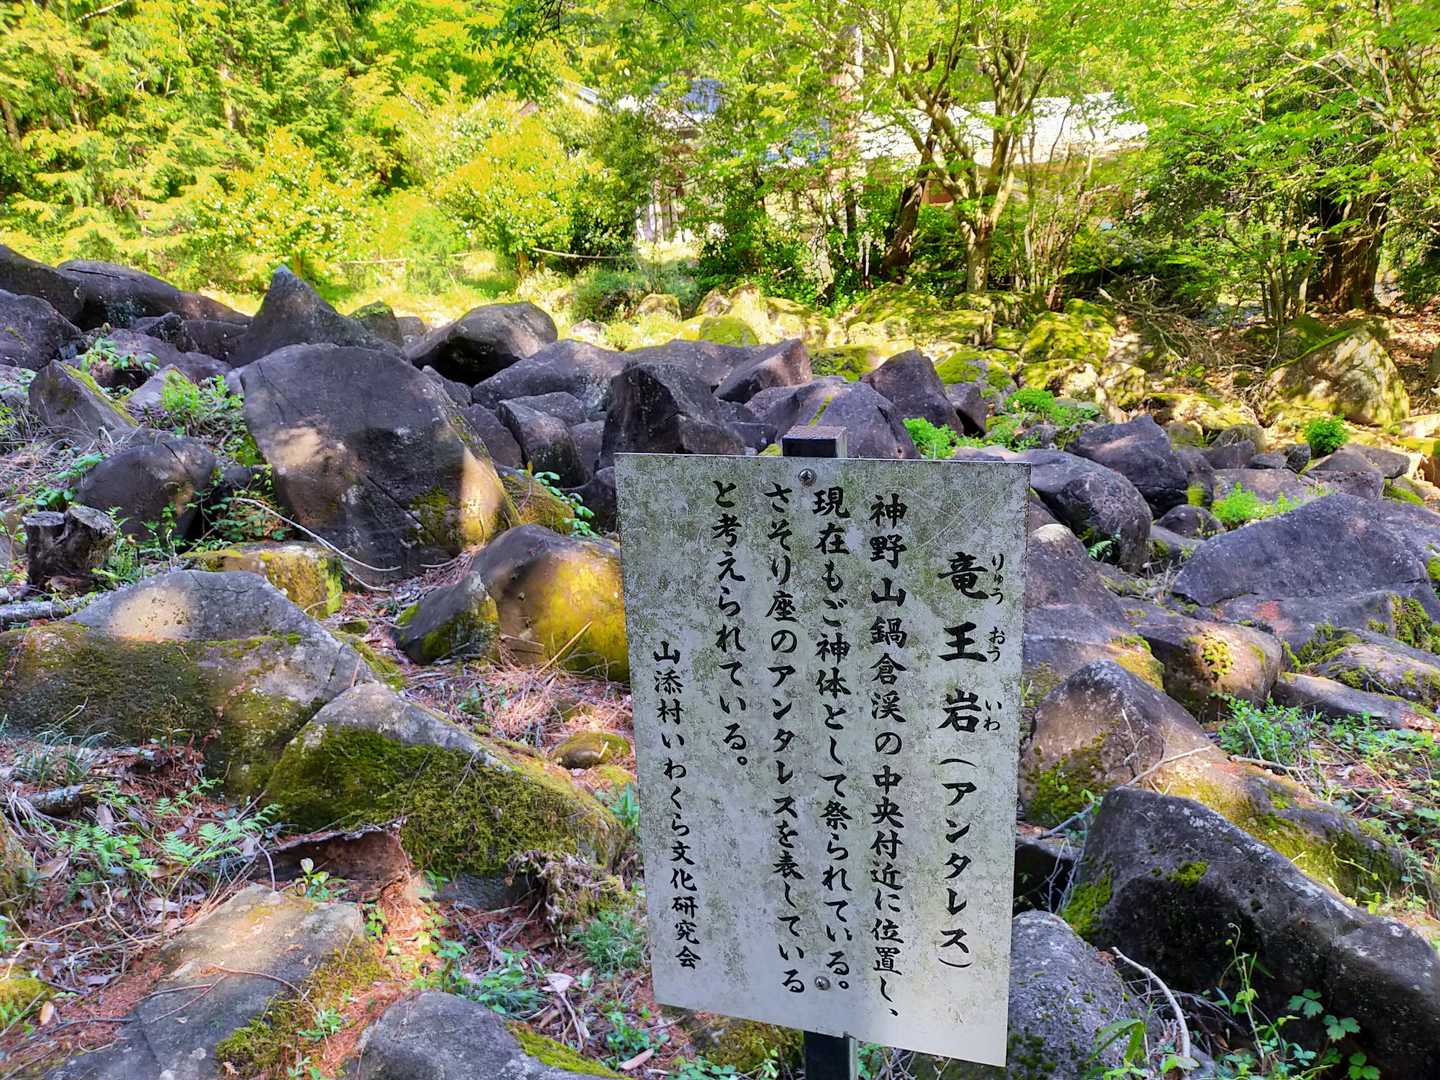 竜王岩(アンタレス)
りゅうおういわ
神野山鍋倉渓の中央付近に位置し、
現在もご神体として祭られている。
さそり座のアンタレスを表している
と考えられている。
山添村いわくら文化研究会